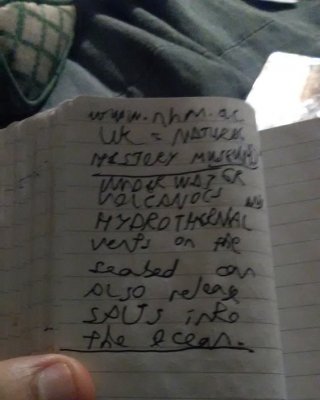 www.nhm.ac
UK = NATURAL
HISTORY MUSEUM
UNDER WATER
VOLCANOES and
HYDROTHERNAL
vents on the
seabed can
ALSO release
SAUTS into
the ocean.